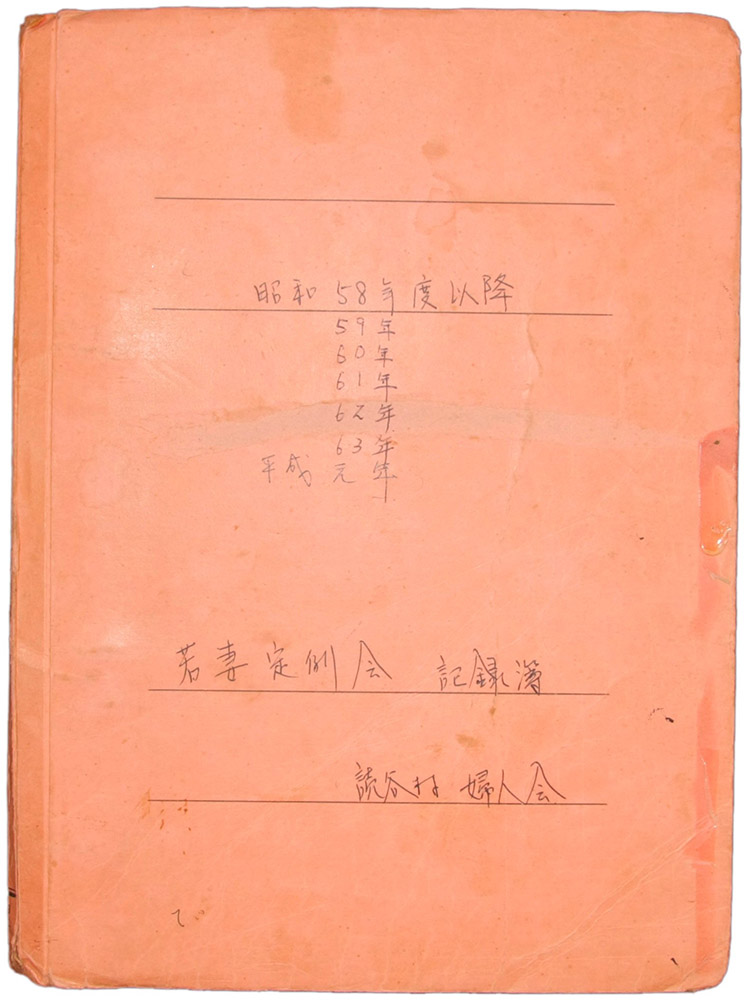 昭和 58年度以降
59年
60年
61年
62年
63年
平成 元年
若妻定例会 記録簿
読谷村 婦人会